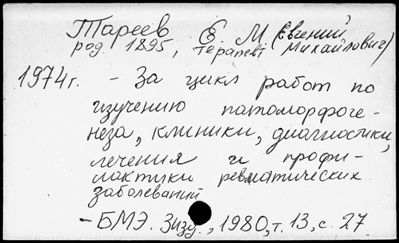 Тареев Е. М (Евгений Михайлович)
род 1895, терапевт
1974г. - За цикл работ по
изучению патоморфоге-
неза, клиники, диагностики,
лечения и профи-
лактики ревматических
заболеваний
- БМЭ. 3изд., 1980, т. 13, с. 27